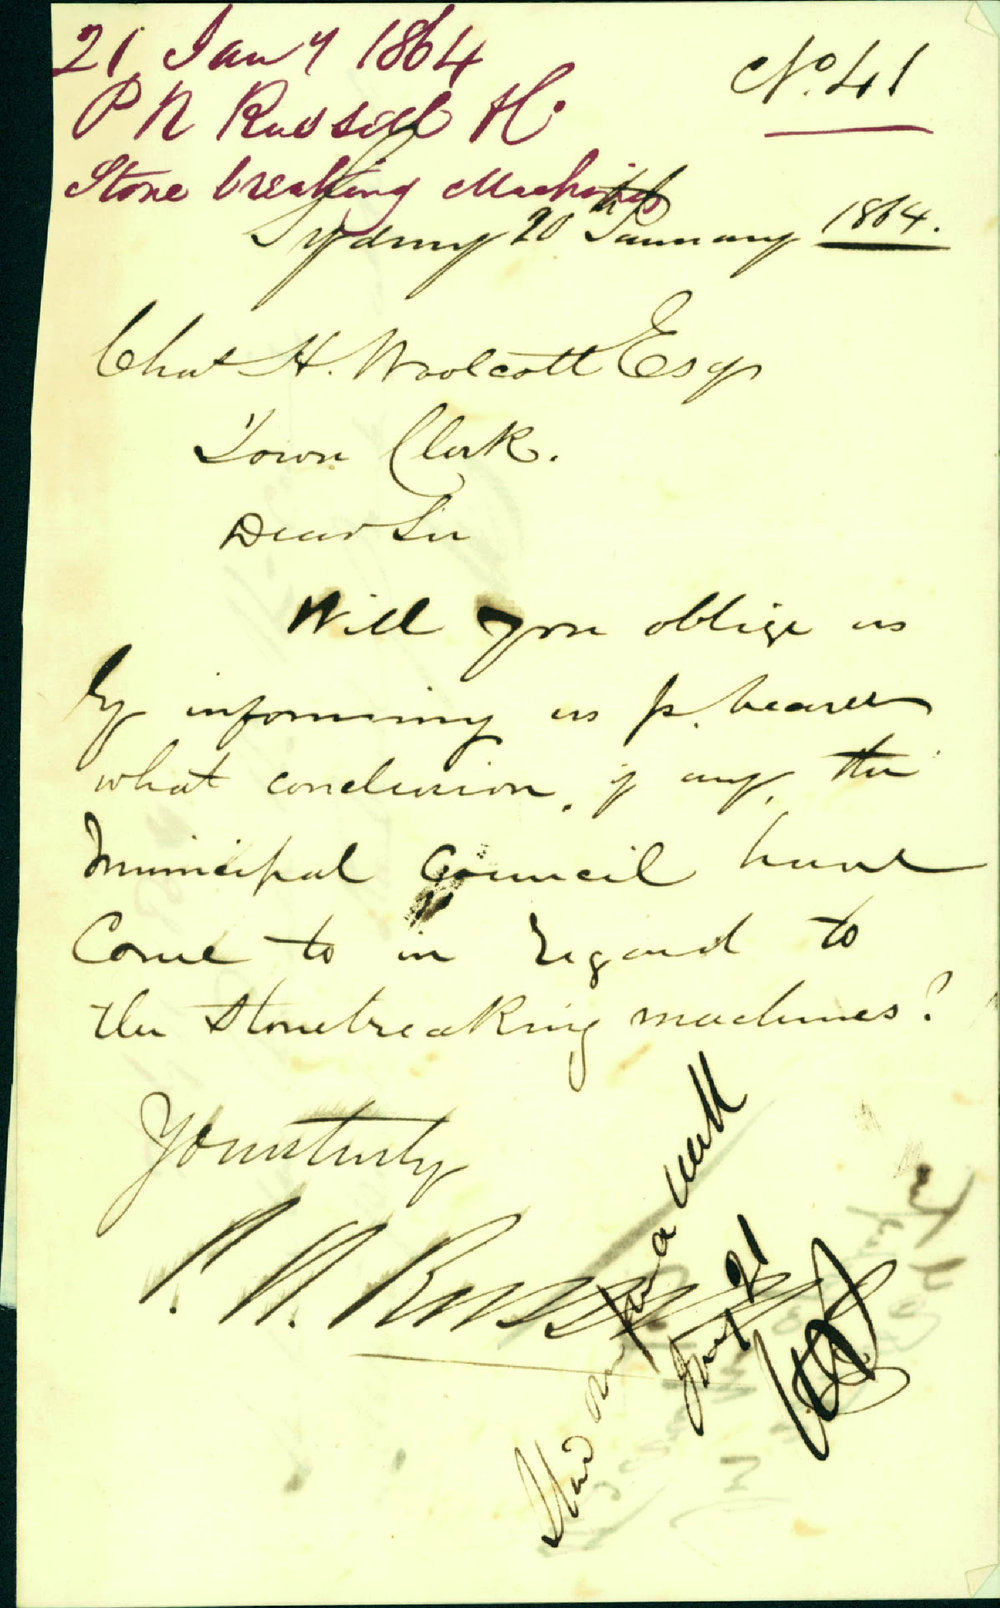 21 Jany 1864
No. 41
P N Russell & Co
Stone breaking Machines
Sydney 20th January 1864.
Chas H. Woolcott Esqr
Town Clerk.
Dear Sir
Will you oblige us
by informing us pr. bearer
what conclusion, if any, the
Municipal Council have
Come to in regard to
the Stonebreaking machines?
Yours truly
P. N. Russell
Stand over for a week
Jany 21